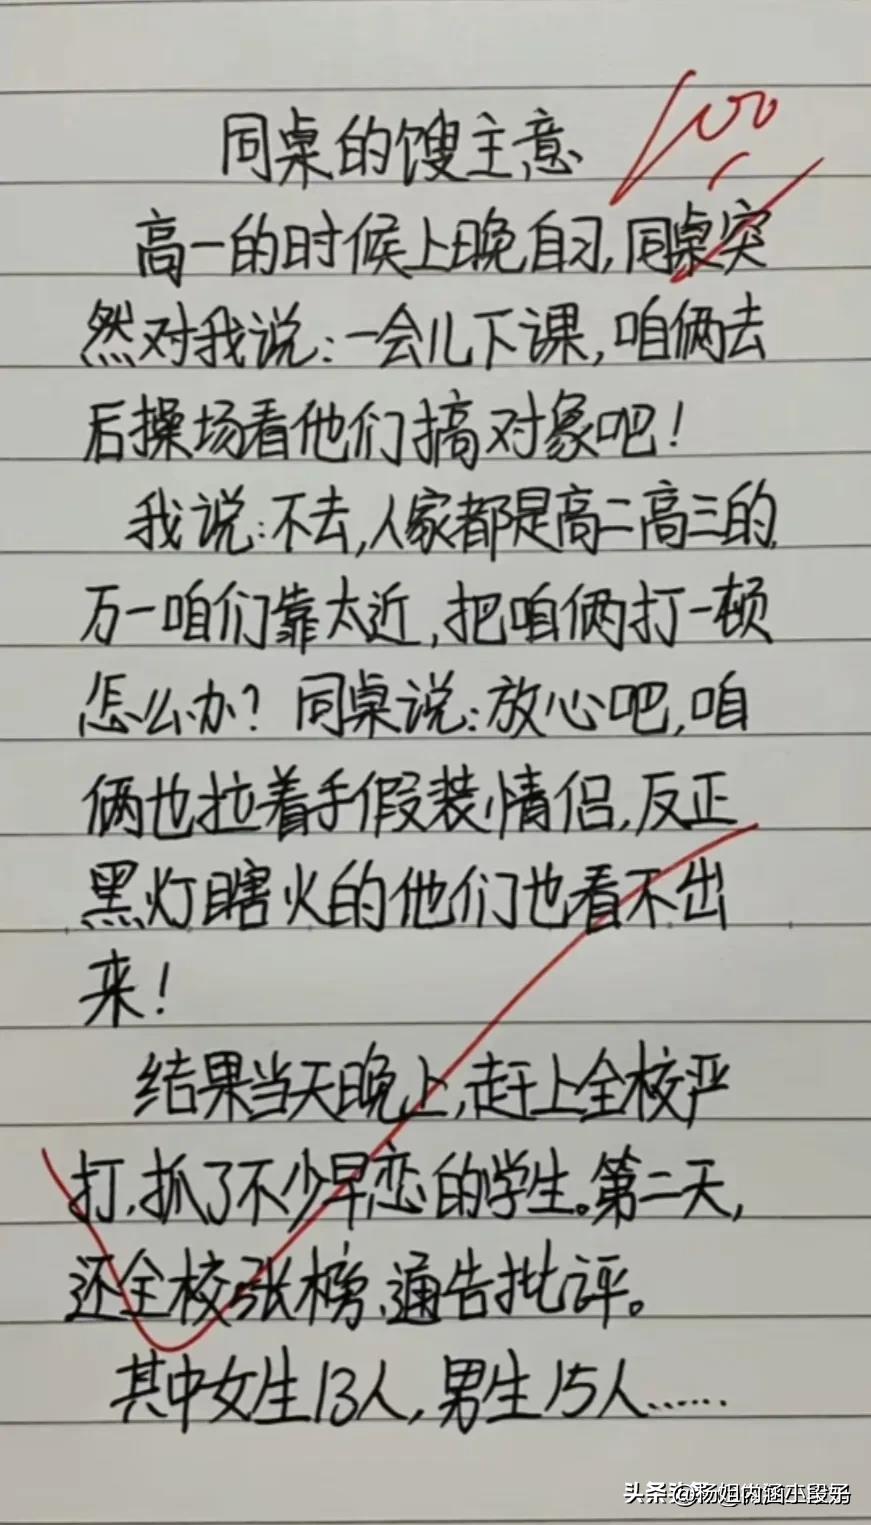 同桌的馊主意
100
高一的时候上晚自习,同桌突
然对我说:一会儿下课,咱俩去
后操场看他们搞对象吧!
我说:不去,人家都是高二高三的,
万一咱们靠太近,把咱俩打一顿
怎么办?同桌说:放心吧,咱
俩也拉着手假装情侣,反正
黑灯瞎火的他们也看不出
来!
结果当天晚上,赶上全校严
打,抓了不少早恋的学生。第二天,
还全校张榜、通告批评。
其中女生13人,男生15人……
头条 @杨姐内涵小段子